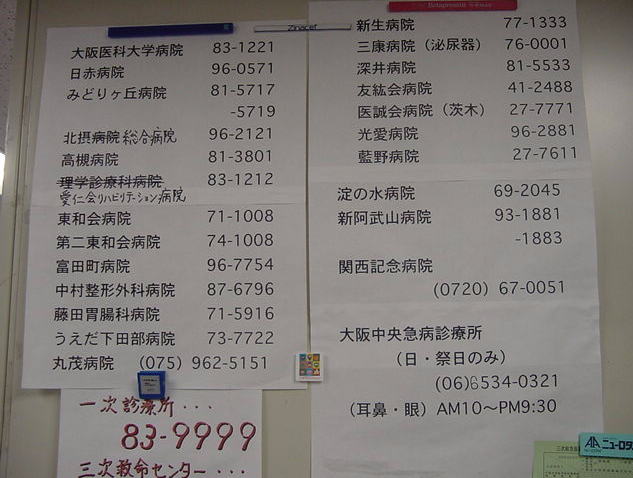 大阪医科大学病院 83-1221
日赤病院 96-0571
みどりヶ丘病院 81-5717
-5719
北摂病院総合病院 96-2121
高槻病院 81-3801
理学診療科病院 83-1212
愛仁会リハビリテーション病院
東和会病院 71-1008
第二東和会病院 74-1008
富田町病院 96-7754
中村整形外科病院 87-6796
藤田胃腸科病院 71-5916
うえだ下田部病院 73-7722
丸茂病院 (075) 962-5151
一次診療所・・・
83-9999
三次救命センター・・・
Zinacef
新生病院 77-1333
三康病院（泌尿器） 76-0001
深井病院 81-5533
友紘会病院 41-2488
医誠会病院（茨木） 27-7771
光愛病院 96-2881
藍野病院 27-7611
淀の水病院 69-2045
新阿武山病院 93-1881
-1883
関西記念病院
(0720) 67-0051
大阪中央急病診療所
（日・祭日のみ）
(06)6534-0321
（耳鼻・眼）AM10～PM9:30
ニューロタン